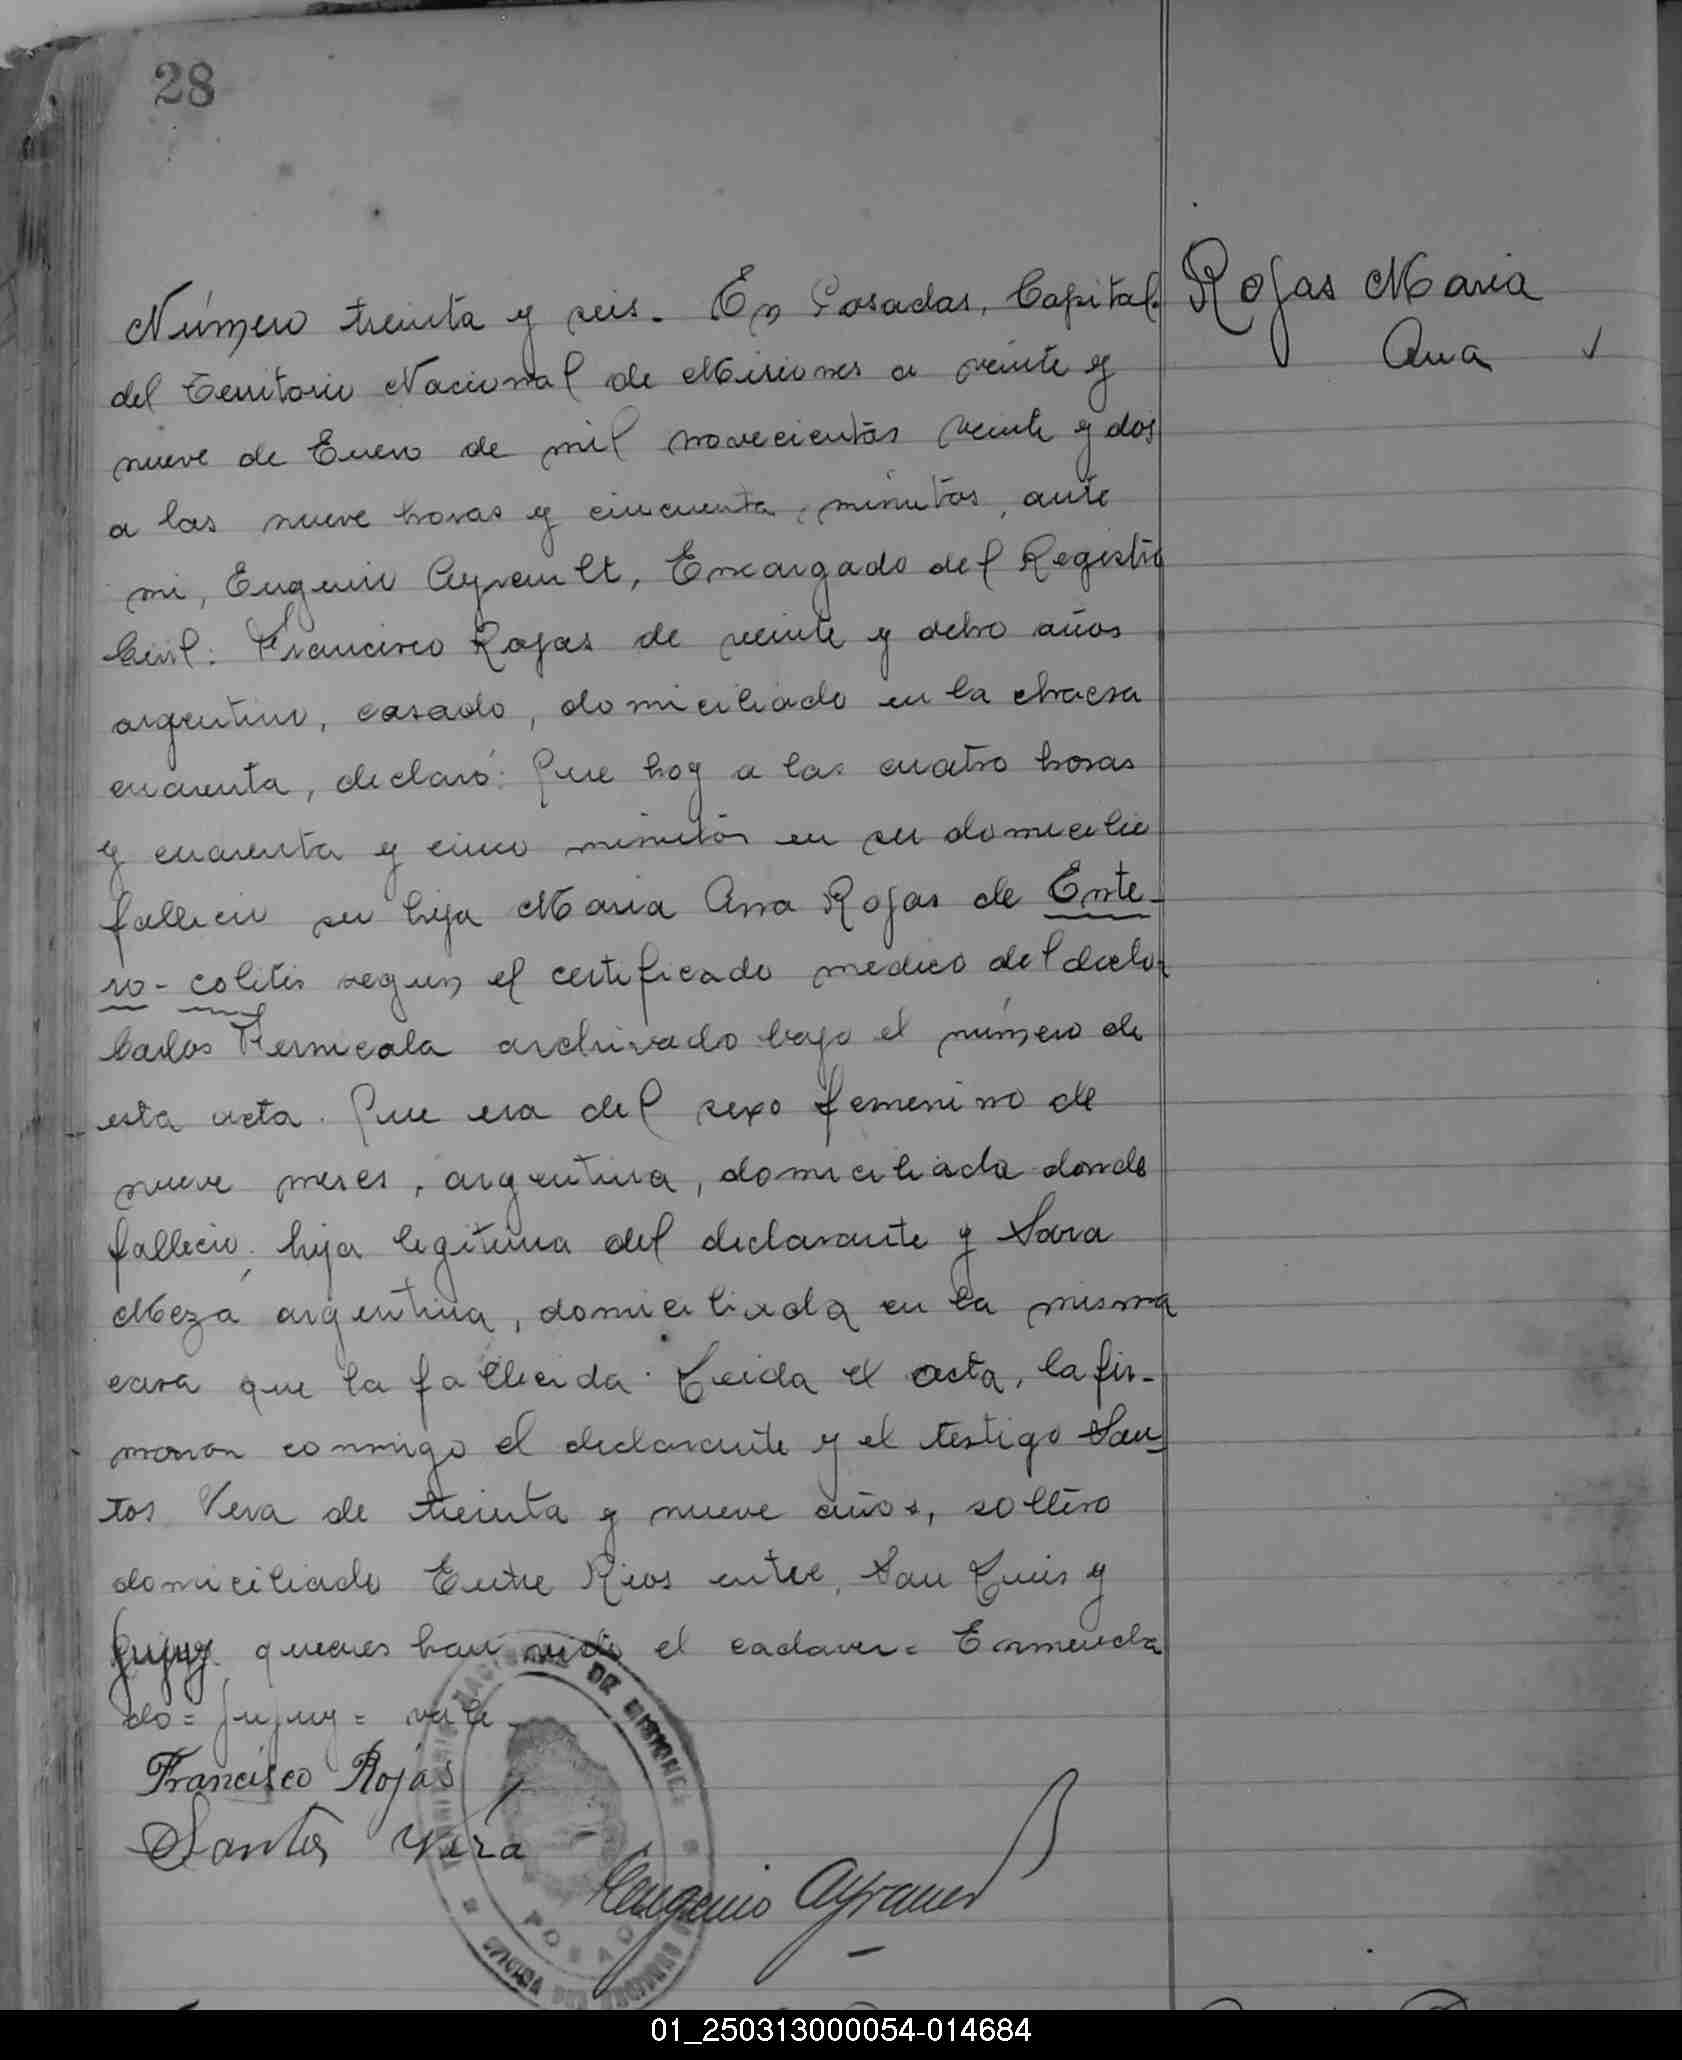 28
Rojas Maria
Ana
Número treinta y seis. En Posadas, Capital
del Territorio Nacional de Misiones a veinte y
nueve de Enero de mil novecientos veinte y dos
a las nueve horas y cincuenta minutos, ante
mi, Eugenio Ayrault, Encargado del Registro
Civil: Francisco Rojas de veinte y ocho años
argentino, casado, domiciliado en la chacra
cuarenta, declaró: Que hoy a las cuatro horas
y cuarenta y cinco minutos en su domicilio
fallecio su hija Maria Ana Rojas de Ente-
ro-colitis segun el certificado medico del doctor
Carlos archivado bajo el número de
esta acta. Que era del sexo femenino de
nueve meses, argentina, domiciliada donde
fallecio, hija legitima del declarante y Sara
Meza argentina, domiciliada en la misma
casa que la fallecida. Leida el acta, la fir-
maron conmigo el declarante y el testigo San
tos Vera de treinta y nueve años, soltero
domiciliado Entre Rios entre San Luis y
Jujuy quienes han visto el cadaver= Enmenda
do= Jujuy= vale
Francisco Rojas
Santos Vera
Eugenio Ayrault
DE MISIONES
POSADAS
OFICINA DEL REGISTRO
01_250313000054-014684